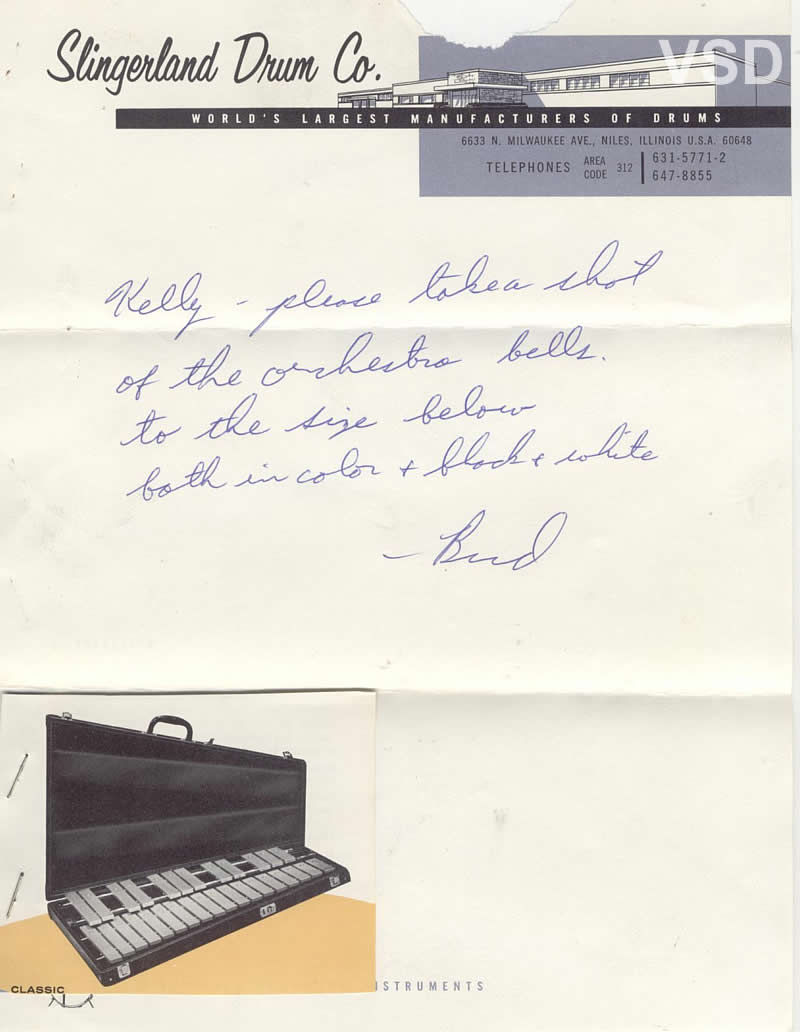 Slingerland Drum Co.
VSD
WORLD'S LARGEST MANUFACTURERS OF DRUMS
6633 N. MILWAUKEE AVE., NILES, ILLINOIS U.S.A. 60648
TELEPHONES AREA CODE 312 631-5771-2
647-8855
Kelly - please take a shot
of the orchestra bells.
to the size below
both in color + black + white
- Bud
CLASSIC
STRUMENTS